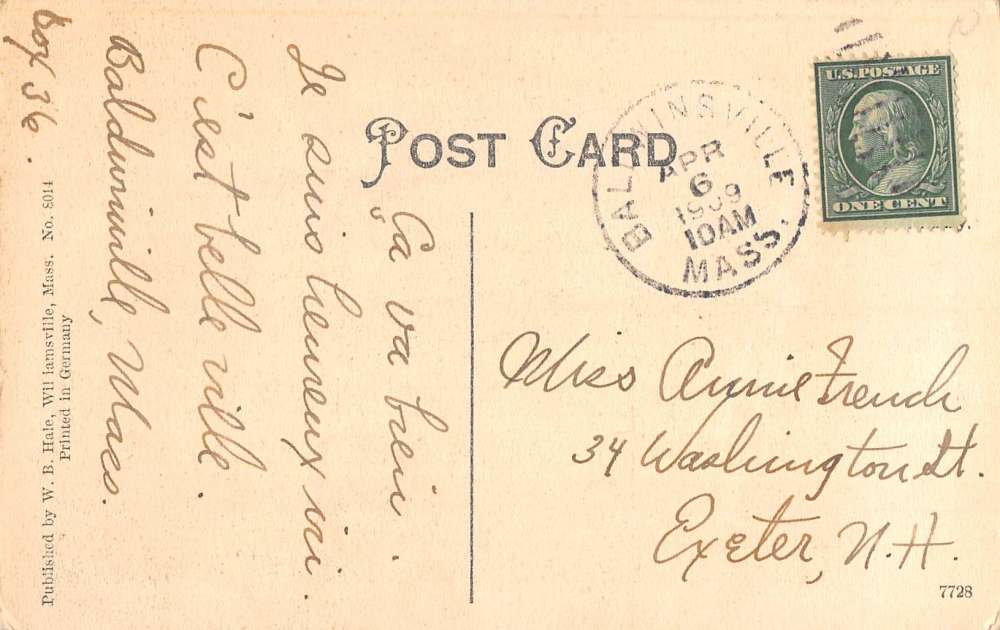 POST CARD
BALDWINSVILLE
APR
6
1909
10AM
MASS.
U.S. POSTAGE
ONE CENT
Ça va bien.
Je suis heureux ici.
C'est belle ville.
Baldwinville, Mass.
Box 36.
Miss Annie French
34 Washington St.
Exeter, N.H.
7728
Published by W. B. Hale, Williamsville, Mass. No. 8014
Printed in Germany